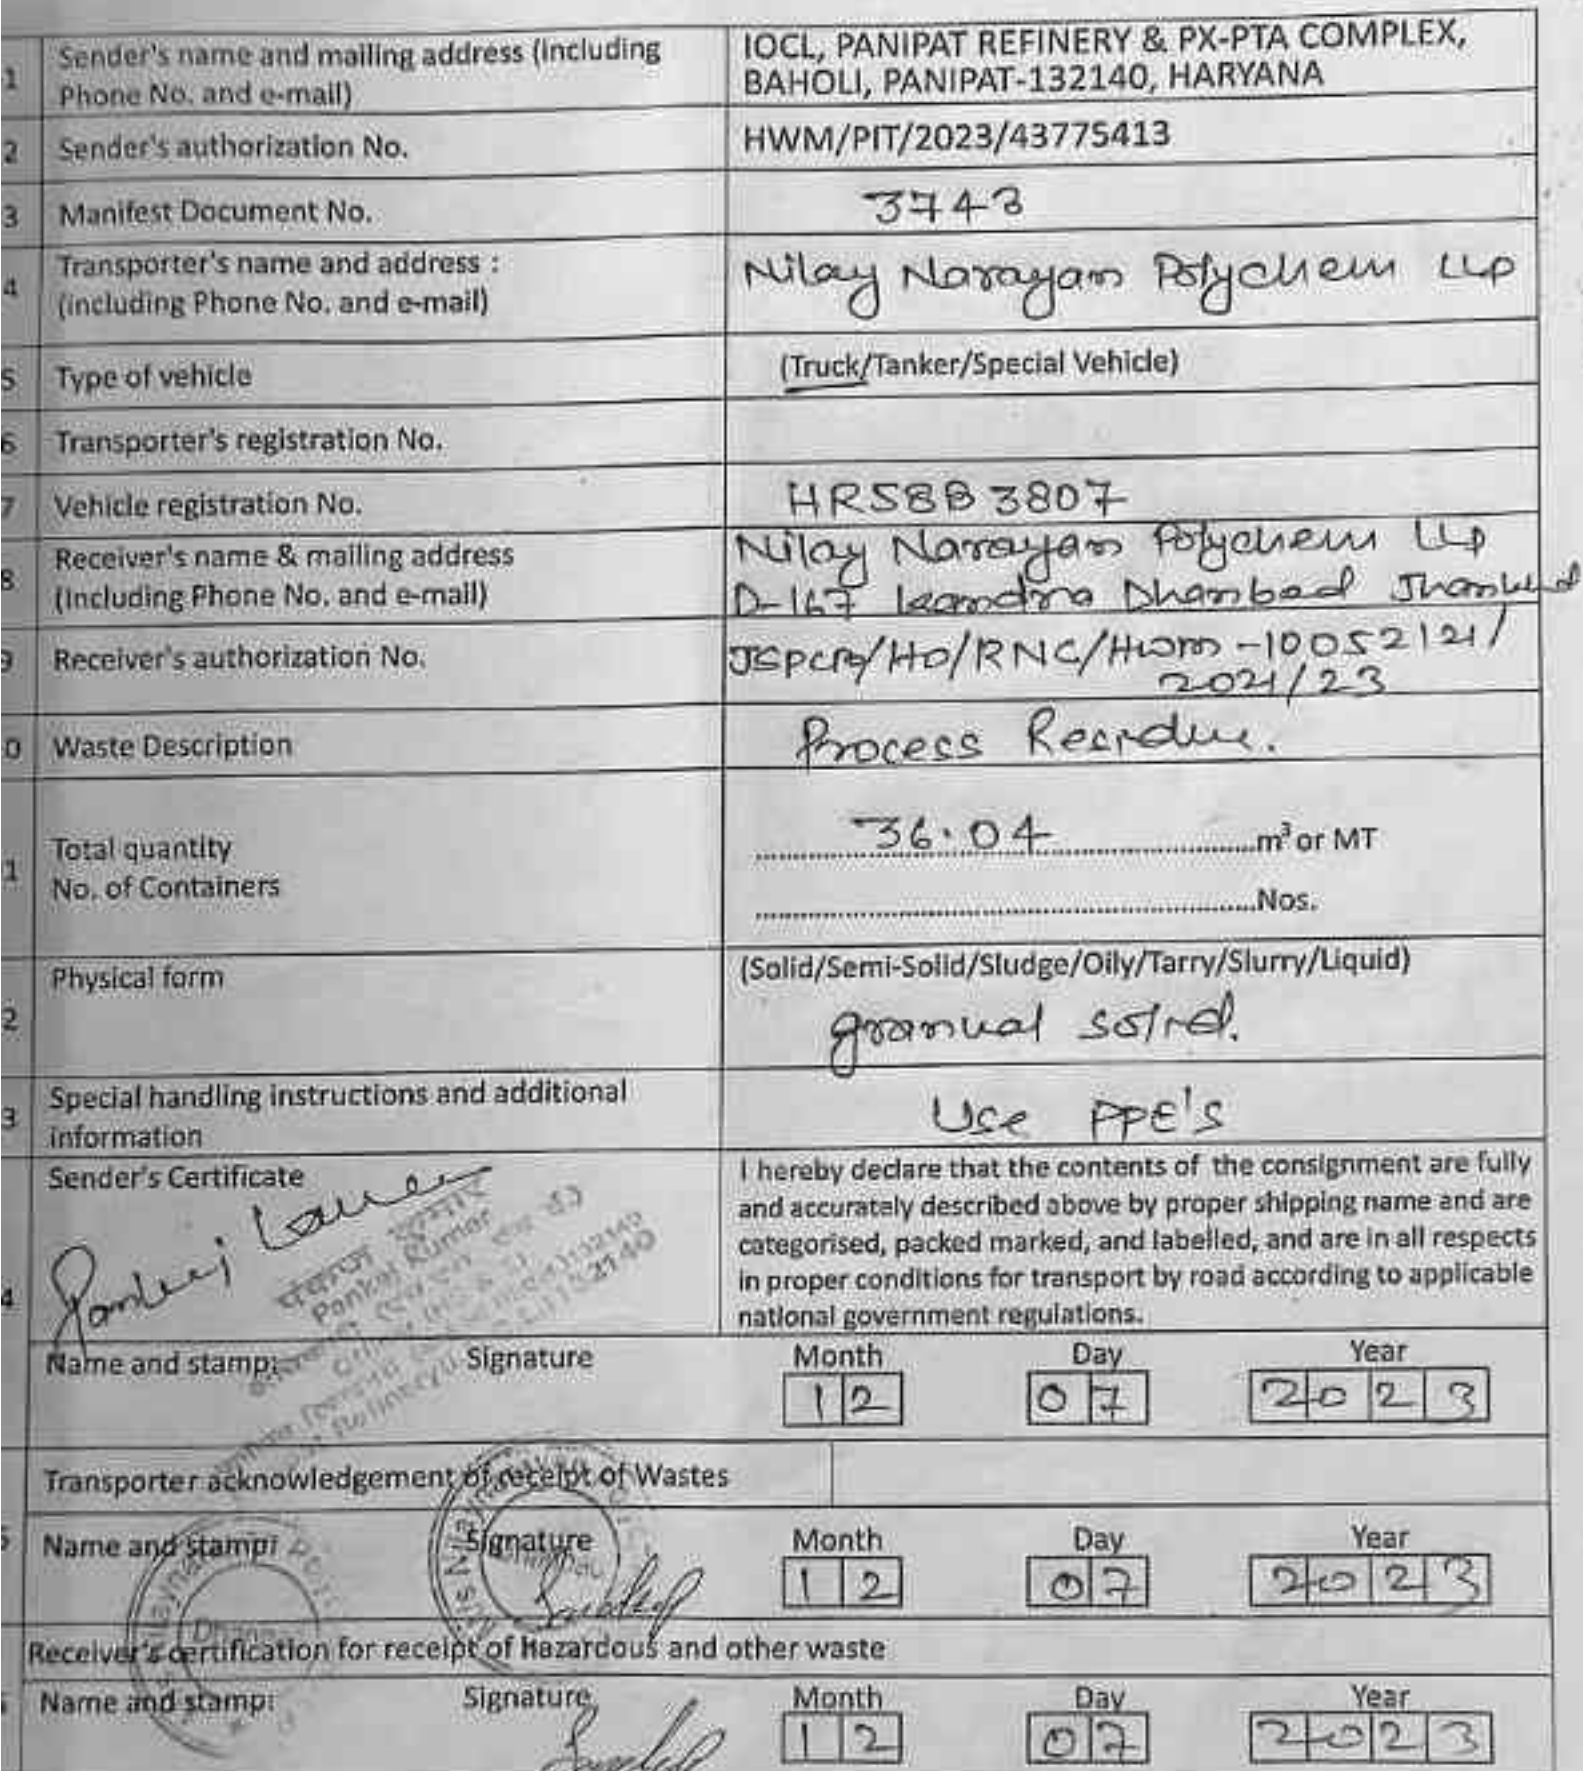 1 Sender's name and mailing address (including
Phone No. and e-mail)
IOCL, PANIPAT REFINERY & PX-PTA COMPLEX,
BAHOLI, PANIPAT-132140, HARYANA
2 Sender's authorization No.
HWM/PIT/2023/43775413
3 Manifest Document No.
3743
4 Transporter's name and address :
(including Phone No. and e-mail)
Nilay Narayan Polychem LLP
5 Type of vehicle
(Truck/Tanker/Special Vehicle)
6 Transporter's registration No.
7 Vehicle registration No.
HR58B 3807
8 Receiver's name & mailing address
(Including Phone No. and e-mail)
Nilay Narayan Polychem LLP
D-167 Dhanbad
9 Receiver's authorization No.
JSPCB/HO/RNC/HWM-10052121/
2021/23
0 Waste Description
Process
1 Total quantity
No. of Containers
36.04 m³ or MT
Nos.
2 Physical form
(Solid/Semi-Solid/Sludge/Oily/Tarry/Slurry/Liquid)
granual solid.
3 Special handling instructions and additional
information
Use PPE's
4 Sender's Certificate
I hereby declare that the contents of the consignment are fully
and accurately described above by proper shipping name and are
categorised, packed marked, and labelled, and are in all respects
in proper conditions for transport by road according to applicable
national government regulations.
पंकज कुमार
Pankaj Kumar
Name and stamp: Signature Month Day Year
12 07 2023
Transporter acknowledgement of receipt of Wastes
Name and stamp: Signature Month Day Year
12 07 2023
Receiver's certification for receipt of Hazardous and other waste
Name and stamp: Signature Month Day Year
12 07 2023